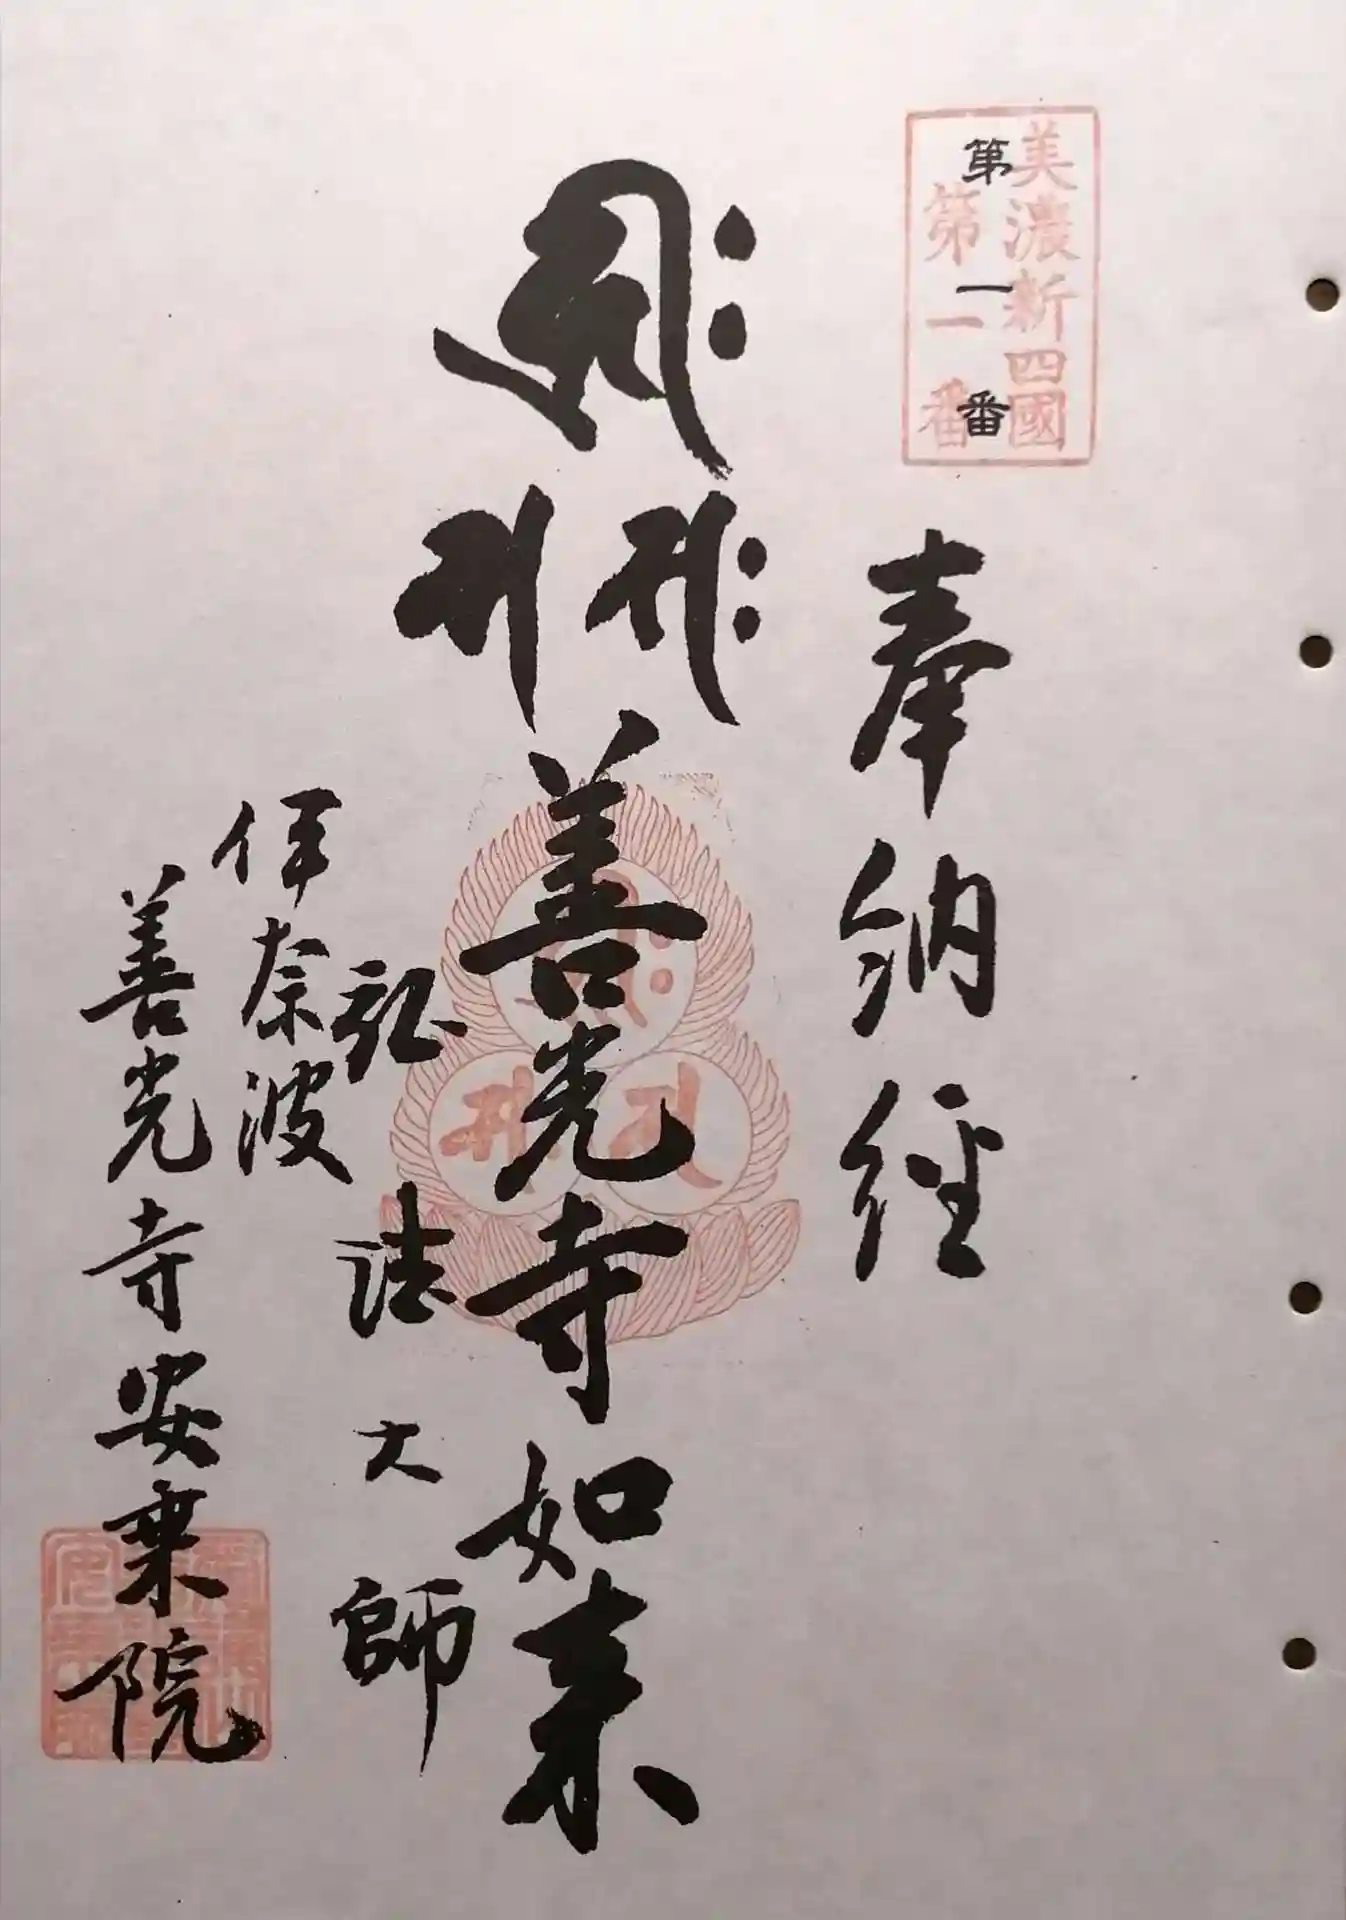 美濃新四國
第一番
第一番
奉納経
𑖮𑖿𑖨𑖱𑖾
𑖭 𑖭𑖾
善光寺如来
弘法大師
伊奈波
善光寺安乗院